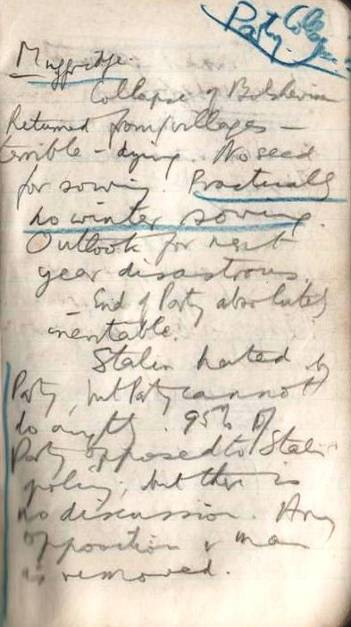 Party. Collapse
Muggridge.
Collapse of Bolshevism
Returned from villages –
terrible – dying. No seed
for sowing. Practically
no winter sowing.
Outlook for next
year disastrous.
– End of Party absolutely
inevitable.
Stalin hated by
Party, but Party cannot
do anyth. 95% of
Party opposed to Stalin
policy; but there is
no discussion. Any
opposition & man
is removed.